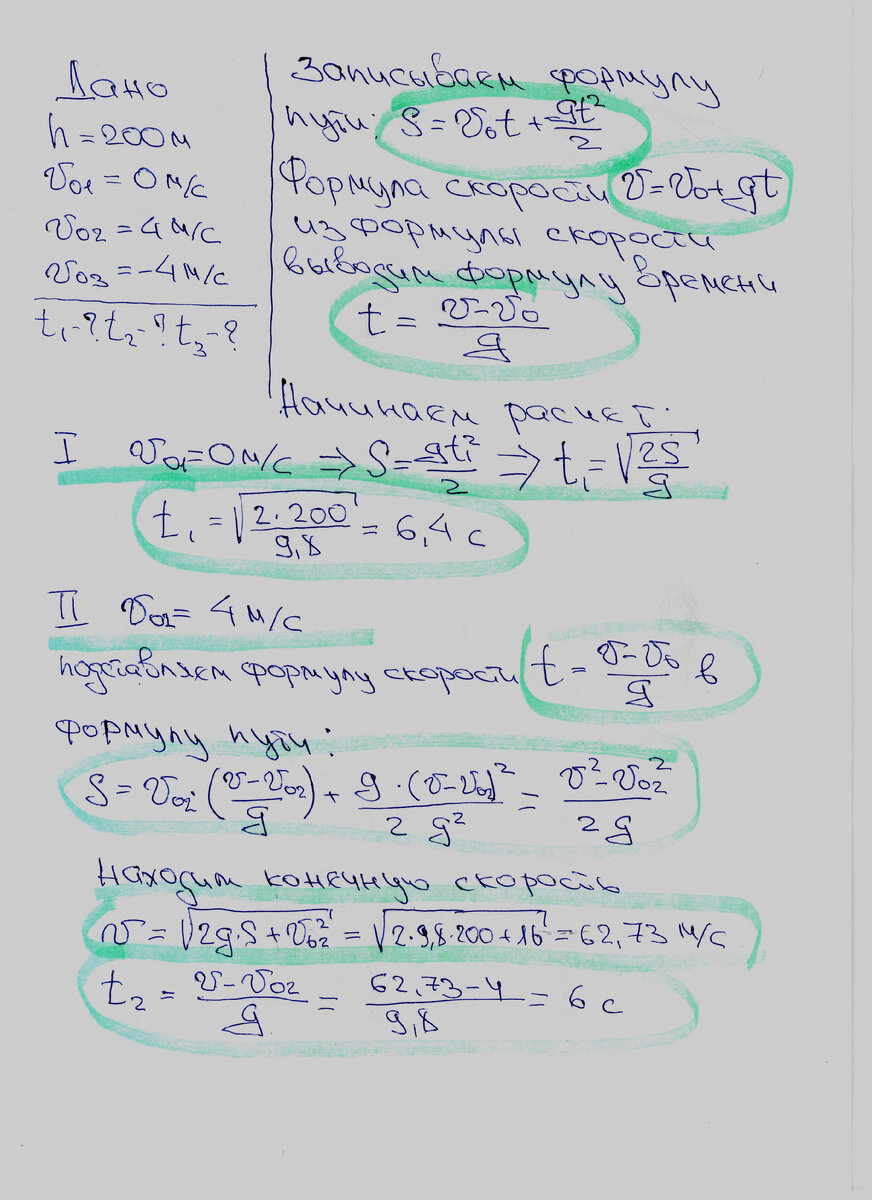 Дано
h = 200 м
v₀₁ = 0 м/с
v₀₂ = 4 м/с
v₀₃ = -4 м/с
t₁-? t₂-? t₃-?
Записываем формулу
пути: S = v₀t + gt²/2
Формула скорости v = v₀ + gt
из формулы скорости
выводим формулу времени
t = (v - v₀)/g
Начинаем расчет.
I v₀₁ = 0 м/с ⇒ S = gt₁²/2 ⇒ t₁ = √(2S/g)
t₁ = √(2·200/9,8) = 6,4 с
II v₀₂ = 4 м/с
подставляем формулу скорости t = (v - v₀)/g в
формулу пути:
S = v₀₂·((v - v₀₂)/g) + g·(v - v₀₂)²/2g² = (v² - v₀₂²)/2g
Находим конечную скорость
v = √(2g·S + v₀₂²) = √(2·9,8·200 + 16) = 62,73 м/с
t₂ = (v - v₀₂)/g = (62,73 - 4)/9,8 = 6 с